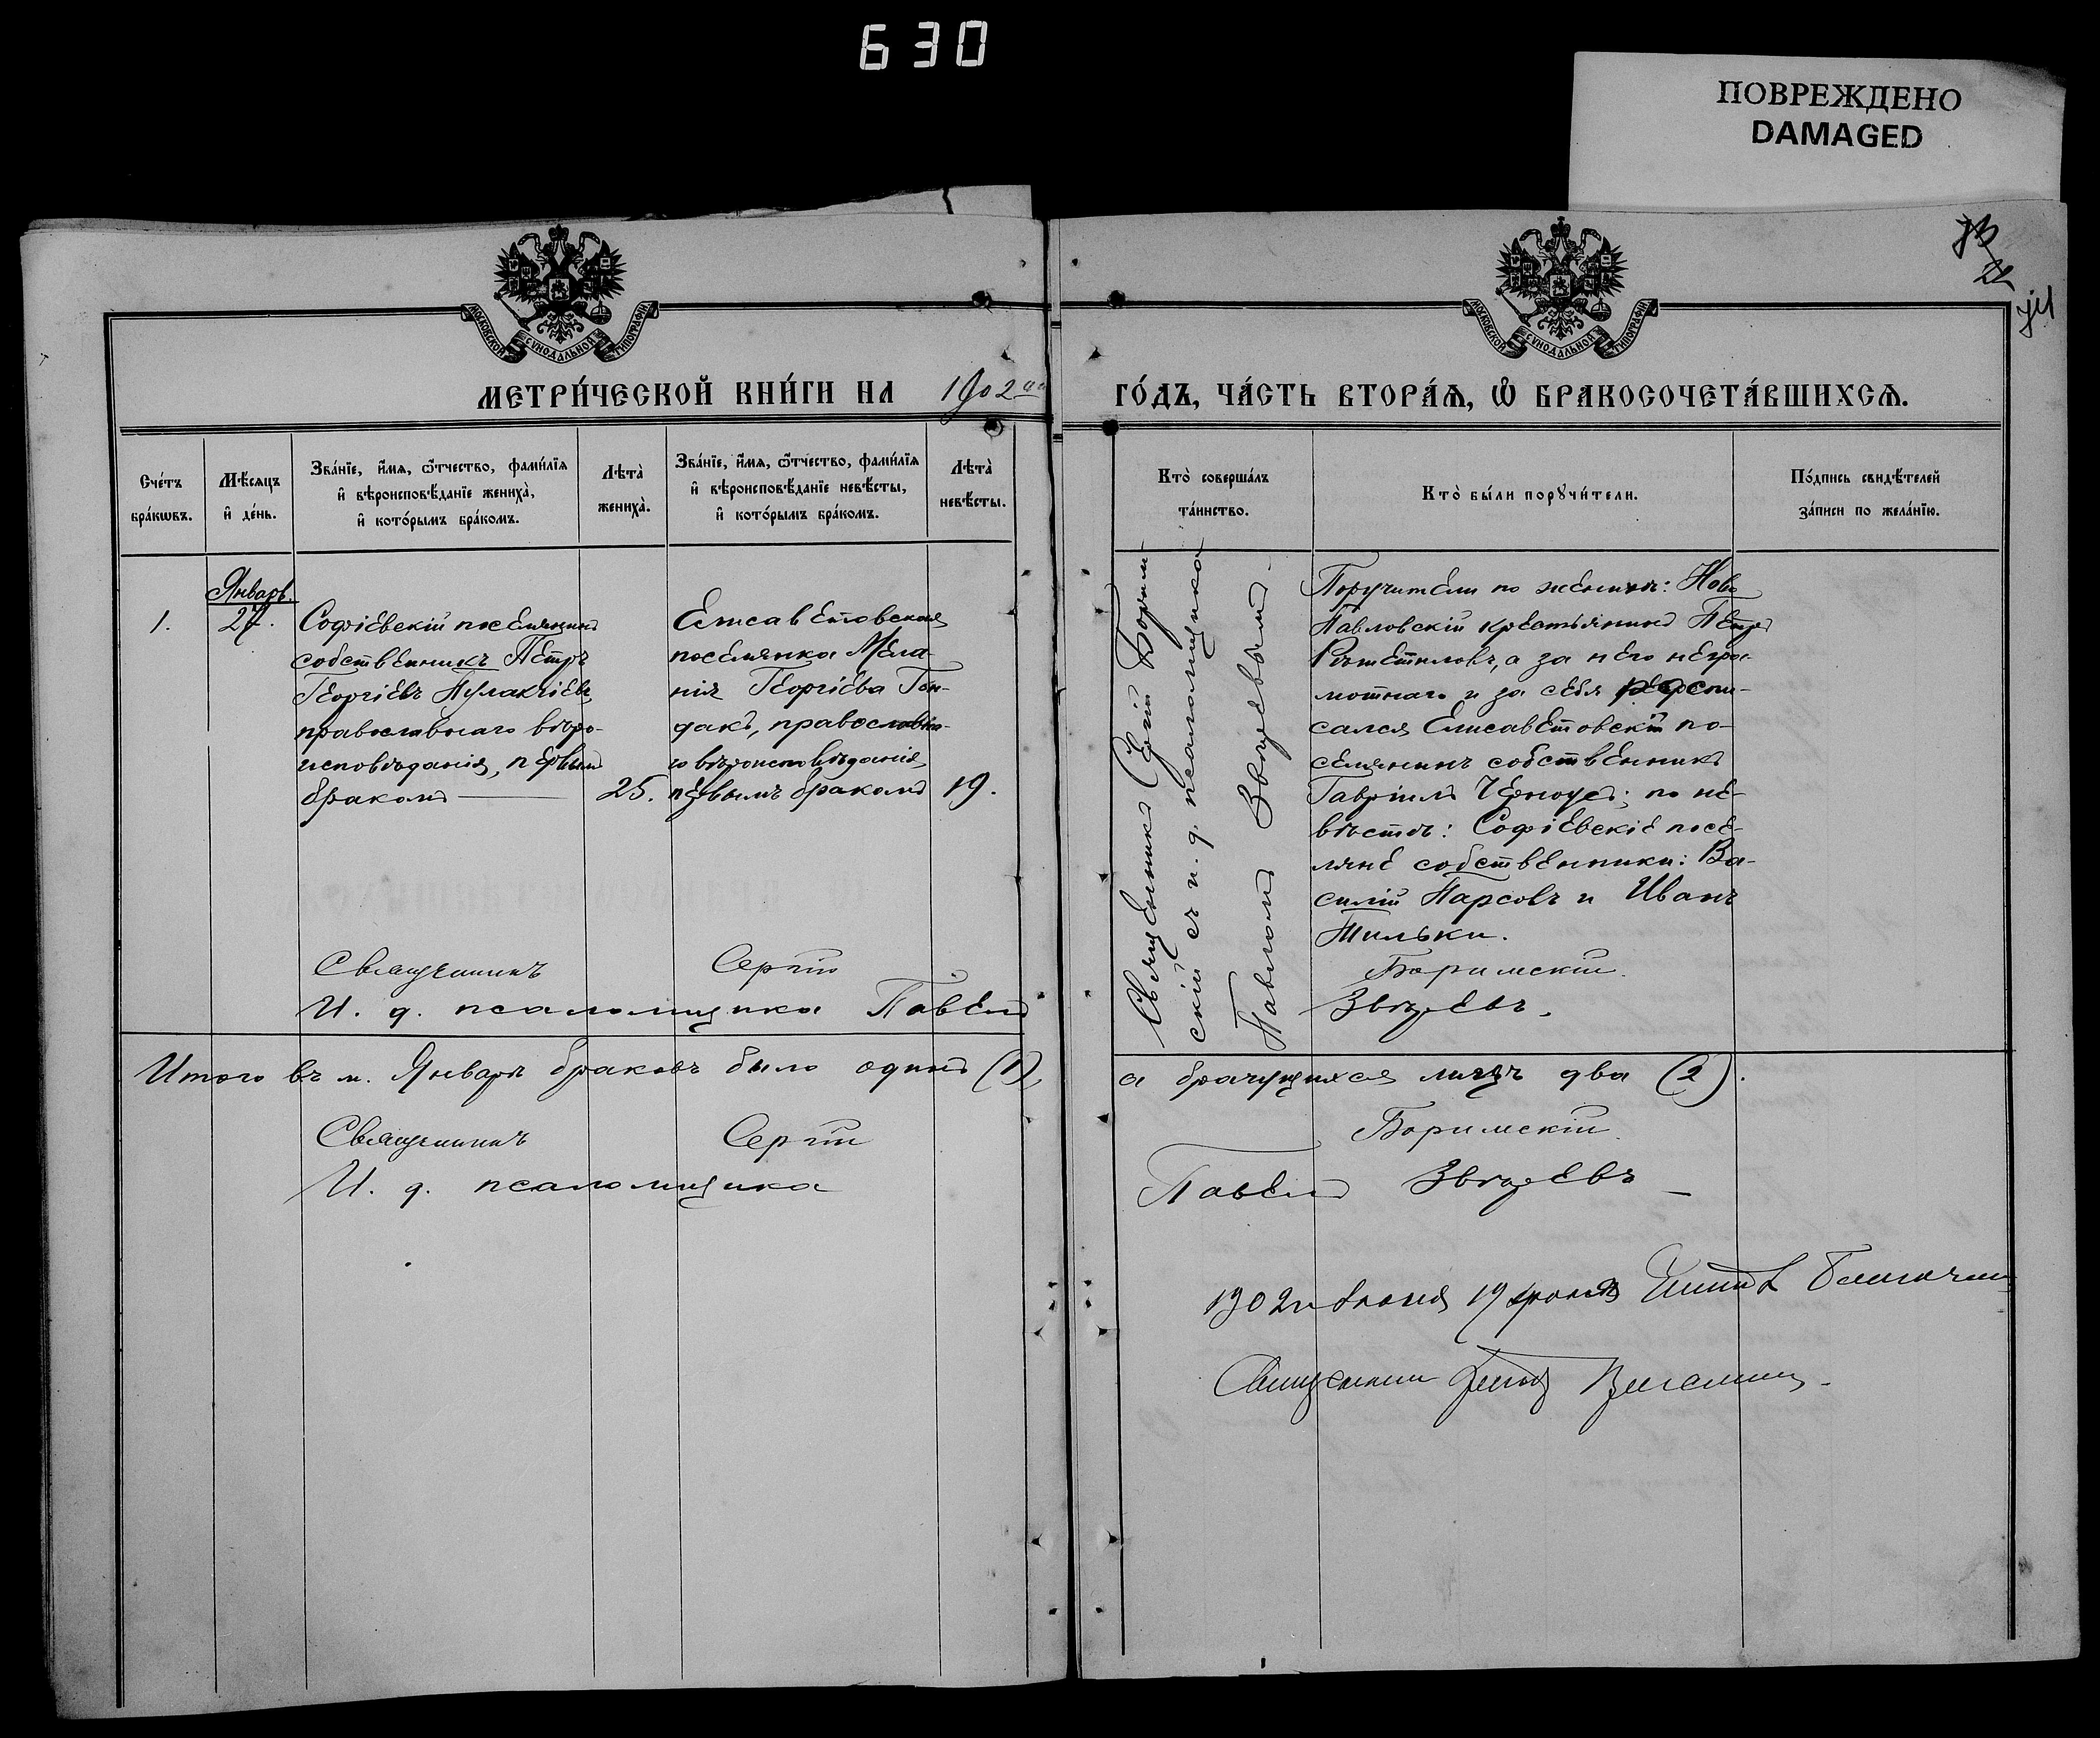 630
ПОВРЕЖДЕНО
DAMAGED
МОСКОВСКОЙ СѴНОДАЛЬНОЙ ТИПОГРАФІИ
МОСКОВСКОЙ СѴНОДАЛЬНОЙ ТИПОГРАФІИ
МЕТРИ́ЧЕСКОЙ КНИ́ГИ НА 1902
ГО́ДЪ, ЧА́СТЬ ВТОРА́Ѧ, Ѿ БРАКОСОЧЕТА́ВШИХСѦ.
Сче́тъ
бра́кѡвъ.
Мѣ́сѧцъ
и҆ де́нь.
Зва́нїе, и҆́мѧ, ѻ҆́тчество, фами́лїѧ
и҆ вѣроисповѣ́данїе жениха̀,
и҆ кото́рымъ бра́комъ.
Лѣта̀
жениха̀.
Зва́нїе, и҆́мѧ, ѻ҆́тчество, фами́лїѧ
и҆ вѣроисповѣ́данїе невѣ́сты,
и҆ кото́рымъ бра́комъ.
Лѣта̀
невѣ́сты.
Кто̀ соверша́лъ
та́инство.
Кто̀ бы́ли порꙋчи́тели.
По́дпись свидѣ́телей
за́писи по жела́нїю.
1.
Январь.
27.
Софіевскій поселянинъ
собственникъ Петръ
Георгіевъ
православнаго вѣро-
исповѣданія, первымъ
бракомъ
25.
Елисаветовская
поселянка Мела-
нія Георгіева Гон-
дакъ, православна-
го вѣроисповѣданія,
первымъ бракомъ
19.
Священникъ Сергій Борим-
скій съ и. д. псаломщика
Павломъ
Поручители по женихѣ: Ново
Павловскій крестьянинъ Петръ
а за него негра-
мотнаго и за себя роспи-
сался Елисаветовскій по-
селянинъ собственникъ
Гавріилъ Черноусъ; по не-
вѣстѣ: Софіевскіе посе-
ляне собственники: Ва-
силій Парсовъ и Иванъ
Тильки.
Священникъ Сергій Боримскій.
И. д. псаломщика Павелъ
Итого въ м. Январѣ браковъ было одинъ (1),
а брачущихся лицъ два (2).
Священникъ Сергій Боримскій.
И. д. псаломщика Павелъ
1902 19
Священникъ